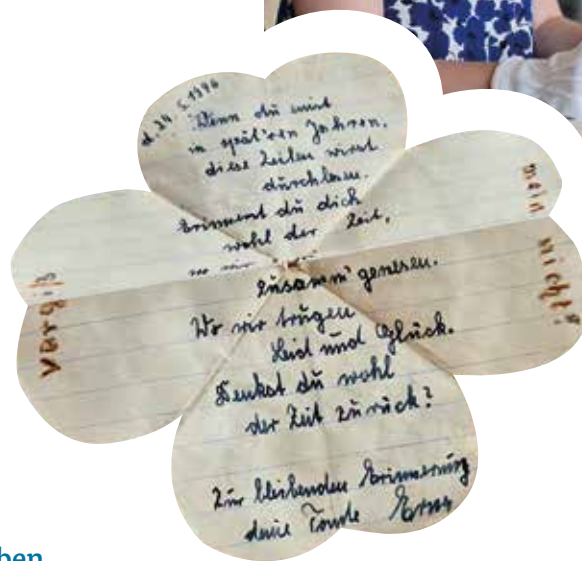 d. 24. 5. 1946
Wenn du einst
in spät'ren Jahren,
diese Zeilen wirst
durchlesen.
Erinnerst du dich
wohl der Zeit,
wo wir
zusamm' genesen.
Wo wir trugen
Leid und Glück.
Denkst du wohl
der Zeit zurück?
Zur bleibenden Erinnerung
deine Tante Erna
Vergiß
mein nicht!
ben